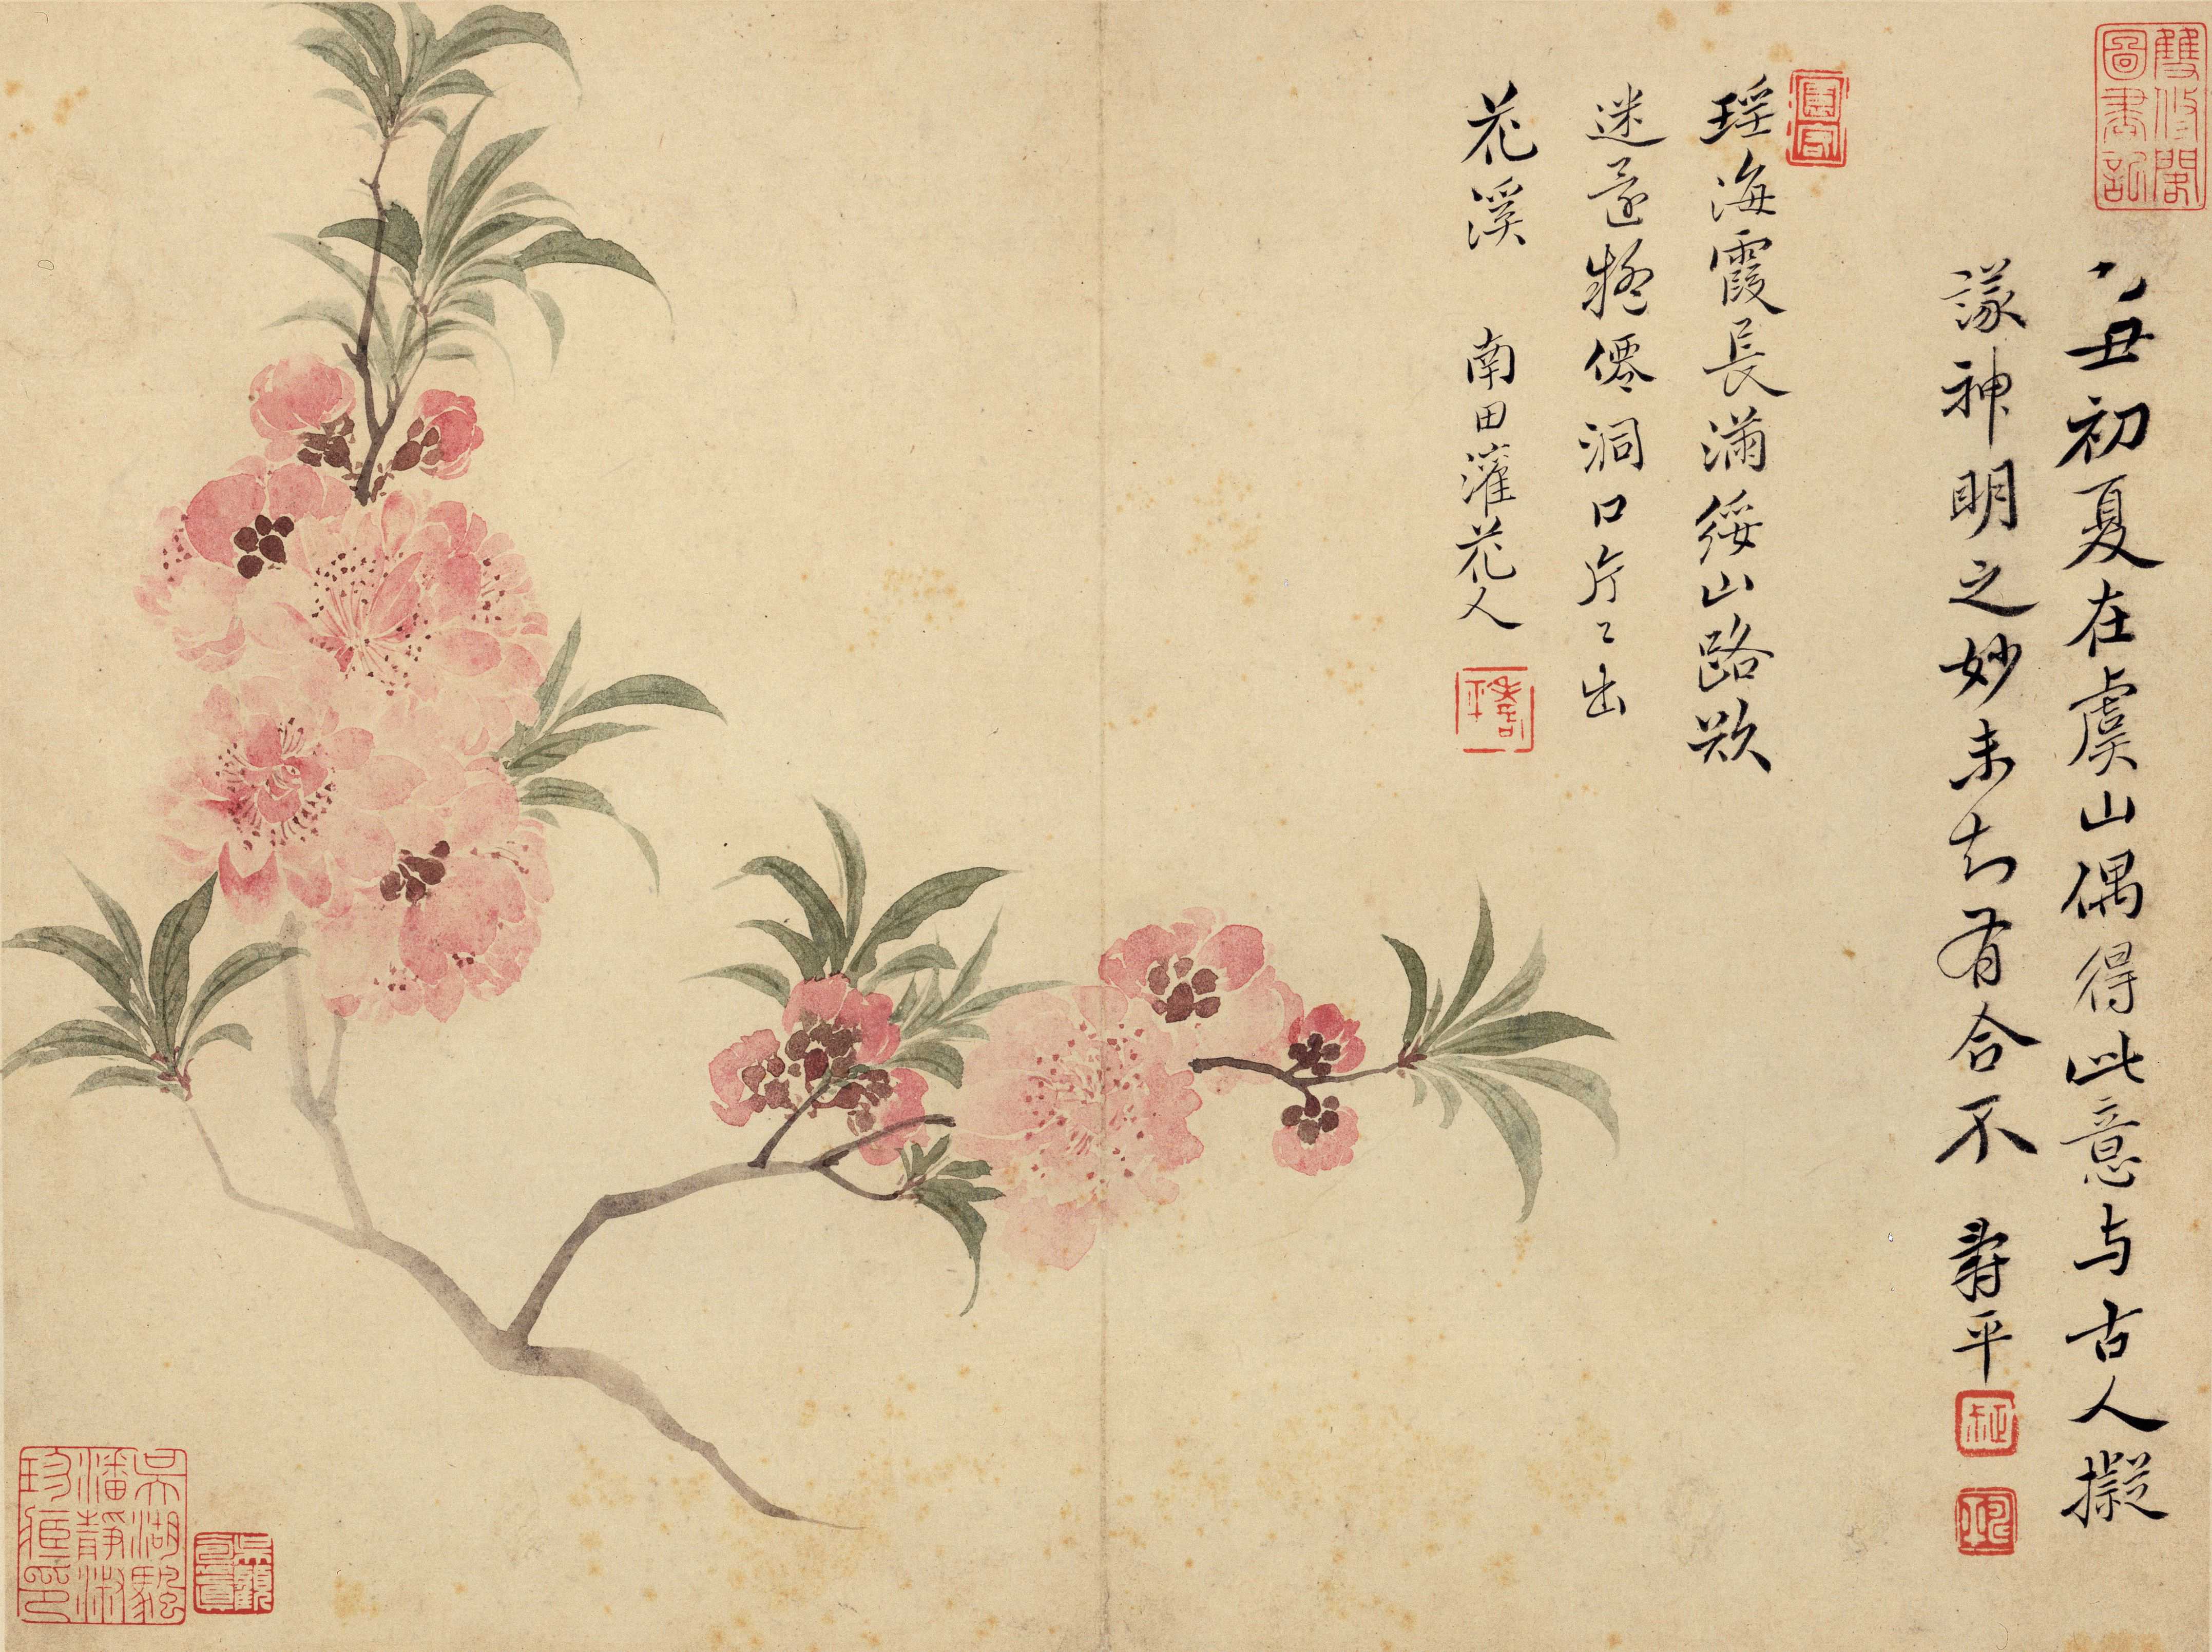 雙修閣
圖書記
丑初夏在虞山偶得此意与古人擬
議神明之妙未知有合不 壽平
園客
瑶海霞長滿綏山路欲
迷還疑僊洞口片〻出
花溪 南田灌花人
壽平
吳湖颿
潘靜淑
珍藏印